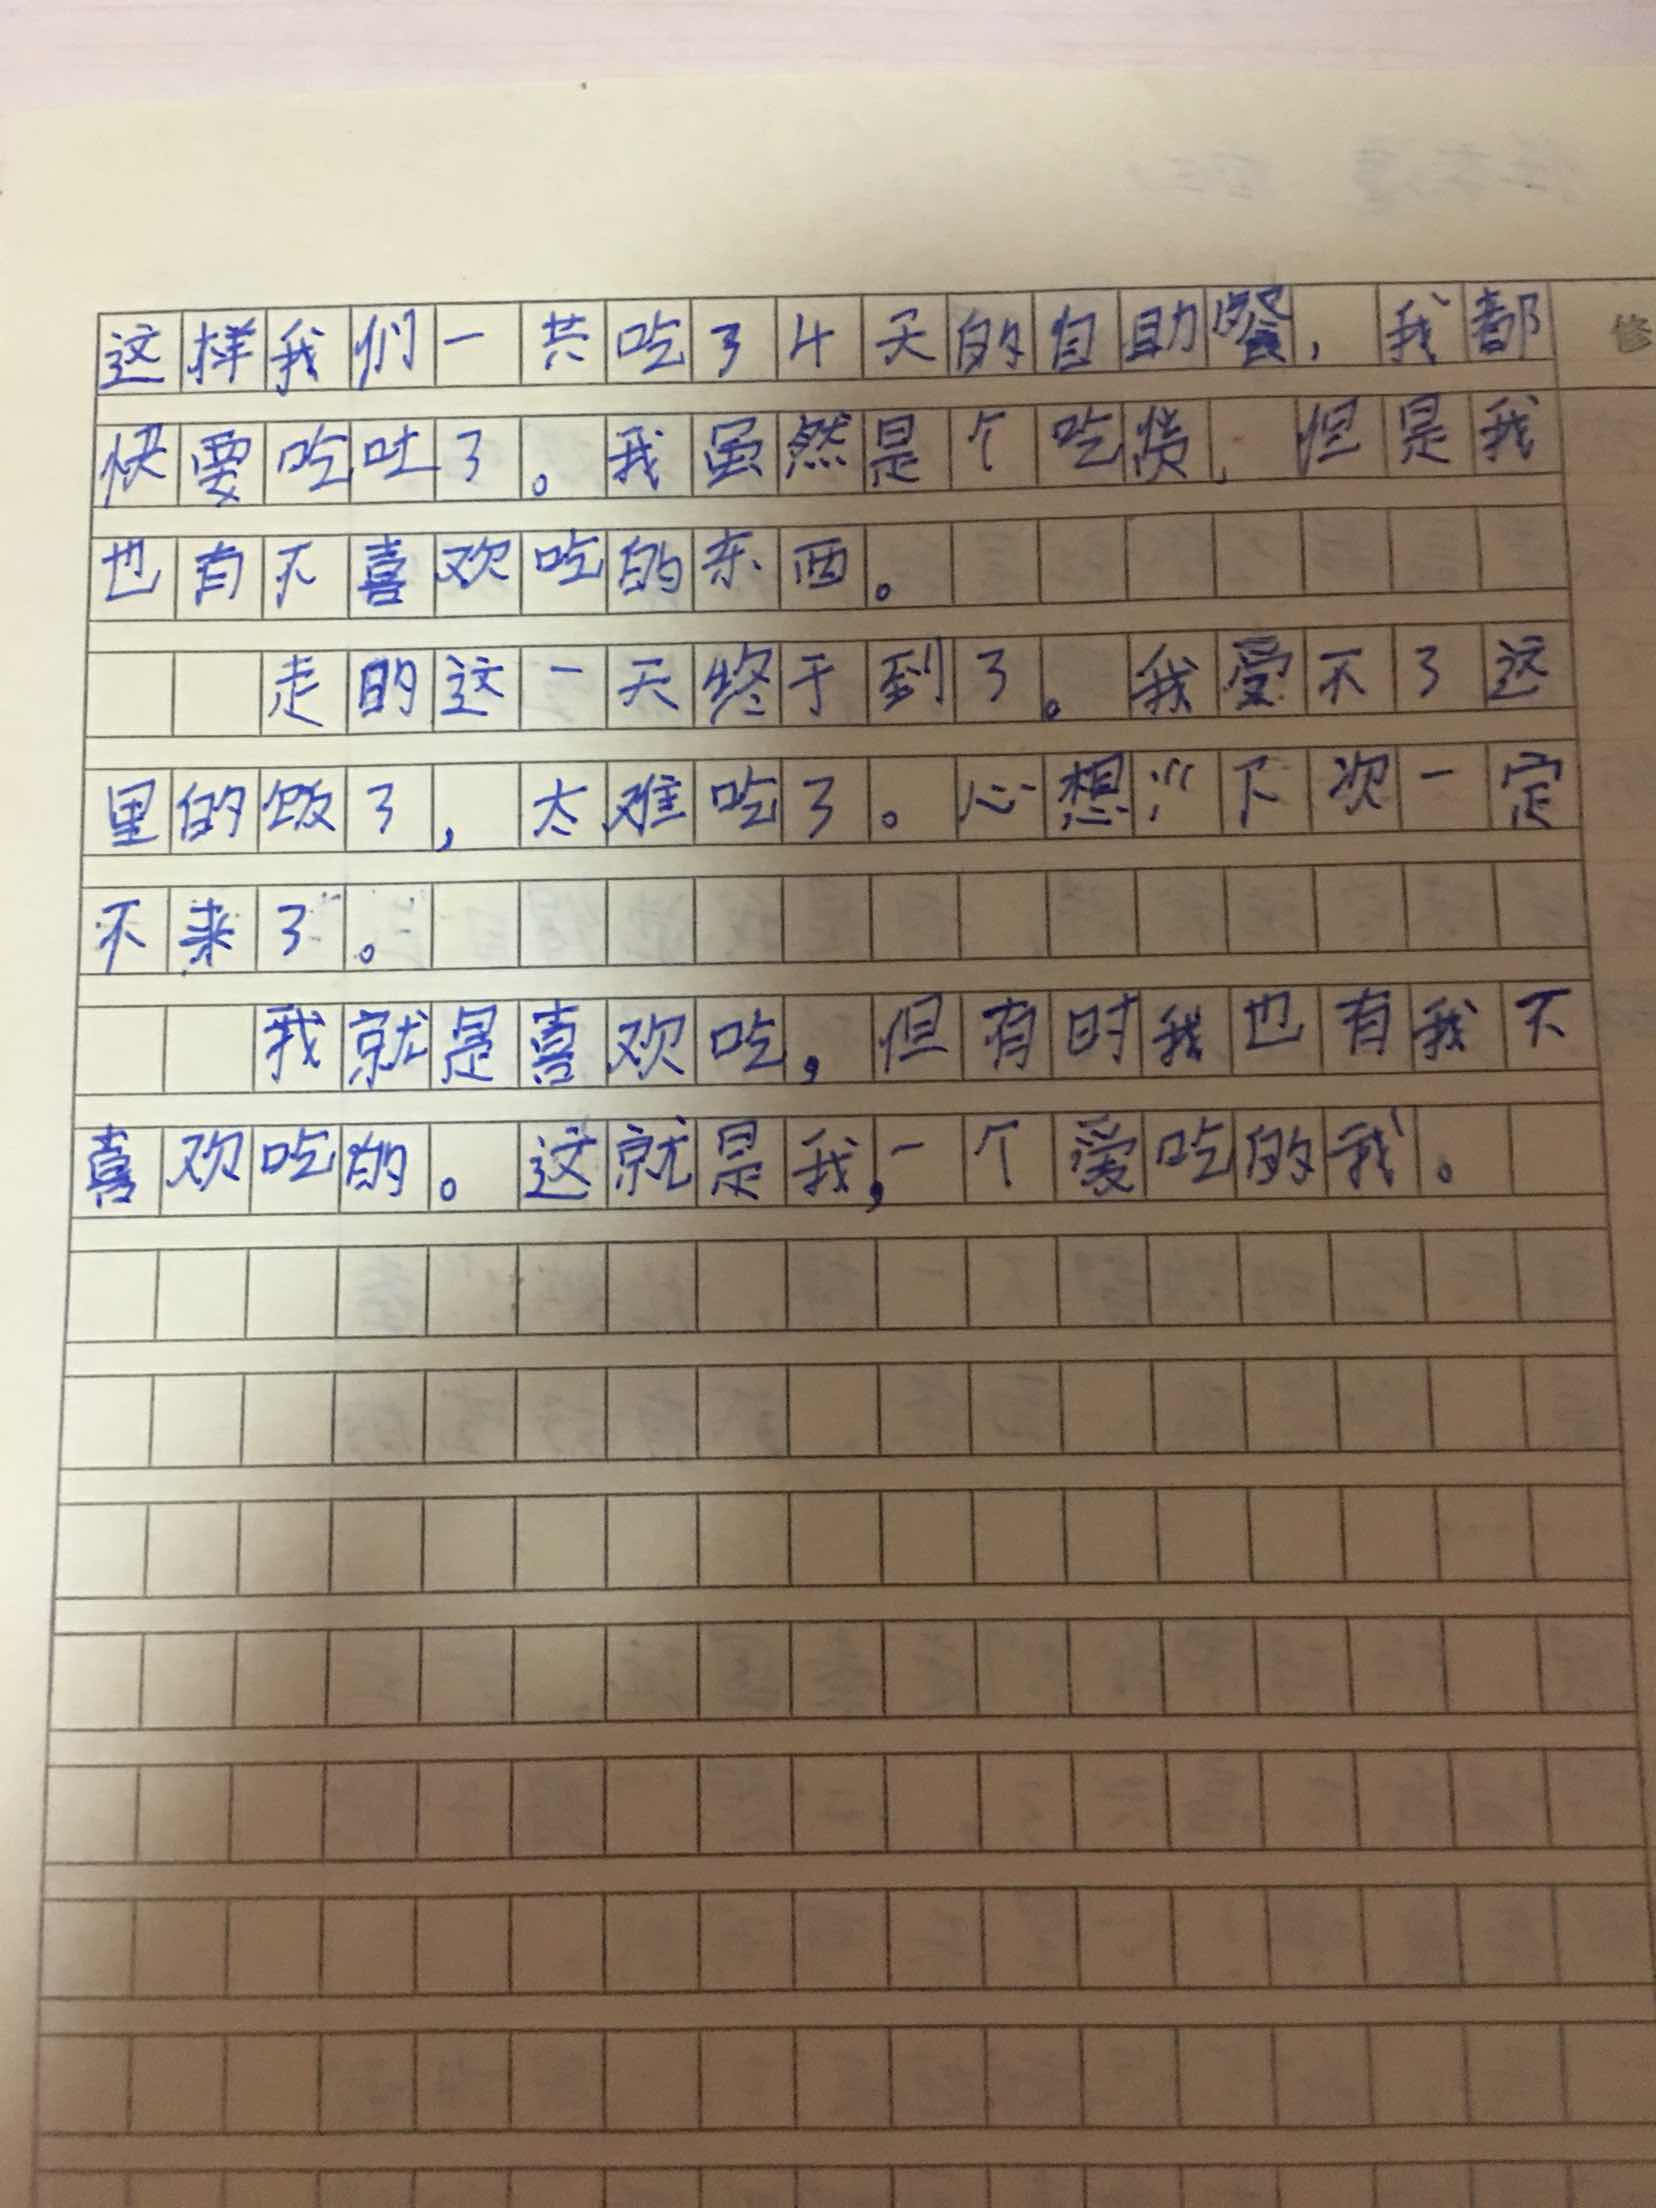 这样我们一共吃了4天的自助餐，我都
快要吃吐了。我虽然是个吃货，但是我
也有不喜欢吃的东西。
走的这一天终于到了。我受不了这
里的饭了，太难吃了。心想：“下次一定
不来了”。
我就是喜欢吃，但有时我也有我不
喜欢吃的。这就是我，一个爱吃的我。
修